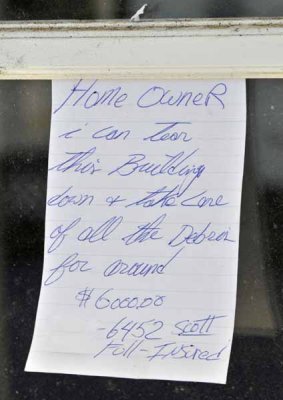 Home OwneR
i can tear
this Building
down & take care
of all the Debree
for around
$6000.00
-6452 Scott
Full-Insired